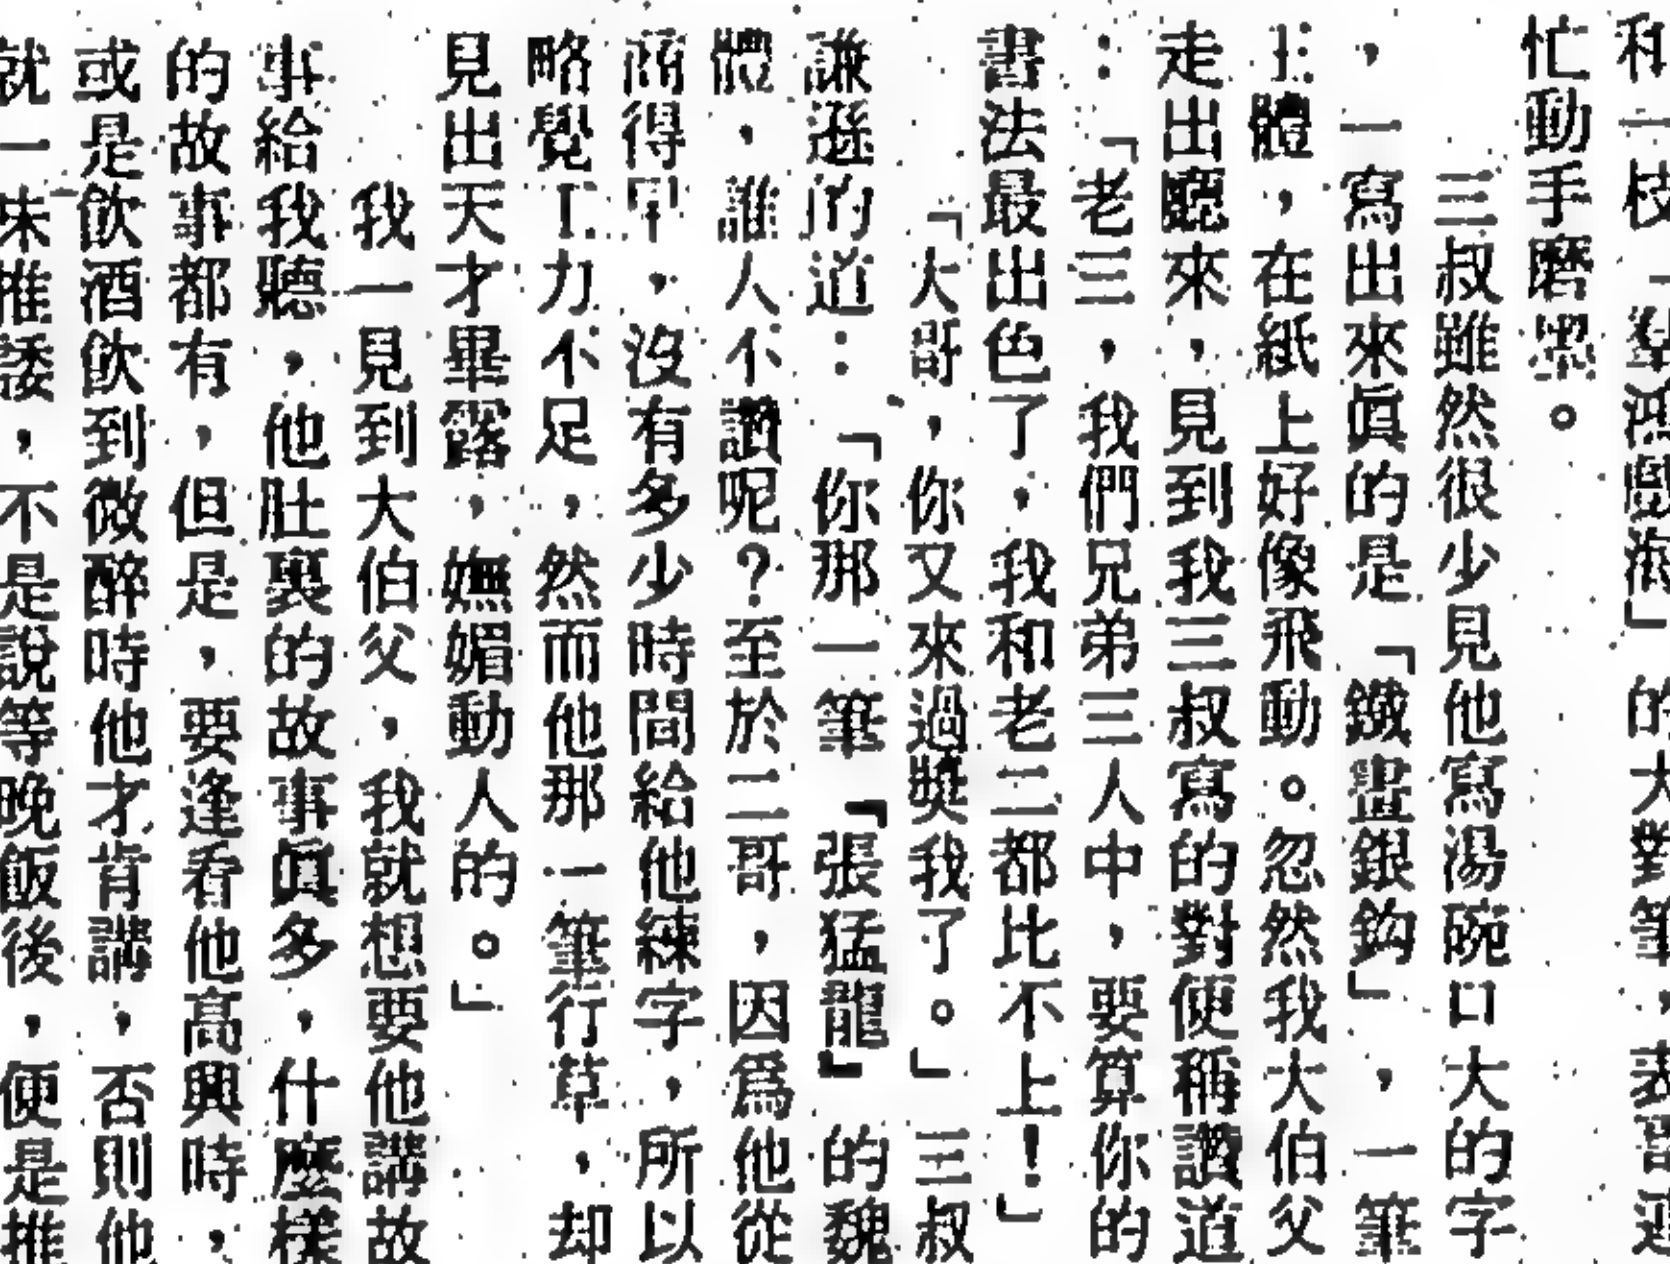 和一枝「羣鴻戲海」的大對筆,表哥
忙動手磨墨。
三叔雖然很少見他寫湯碗口大的字
,一寫出來眞的是「鐵畫銀鈎」,一筆
體,在紙上好像飛動。忽然我大伯父
走出廳來,見到我三叔寫的對便稱讚道
:「老三,我們兄弟三人中,要算你的
書法最出色了,我和老二都比不上!」
「大哥,你又來過獎我了。」三叔
謙遜的道:「你那一筆『張猛龍』的魏
體,誰人不讚呢?至於二哥,因爲他從
商得早,沒有多少時間給他練字,所以
略覺工力不足,然而他那一筆行草,却
見出天才畢露,嫵媚動人的。」
我一見到大伯父,我就想要他講故
事給我聽,他肚裏的故事眞多,什麼樣
的故事都有,但是,要逢看他高興時,
或是飲酒飲到微醉時他才肯講,否則他
就一味推諉,不是說等晚飯後,便是推